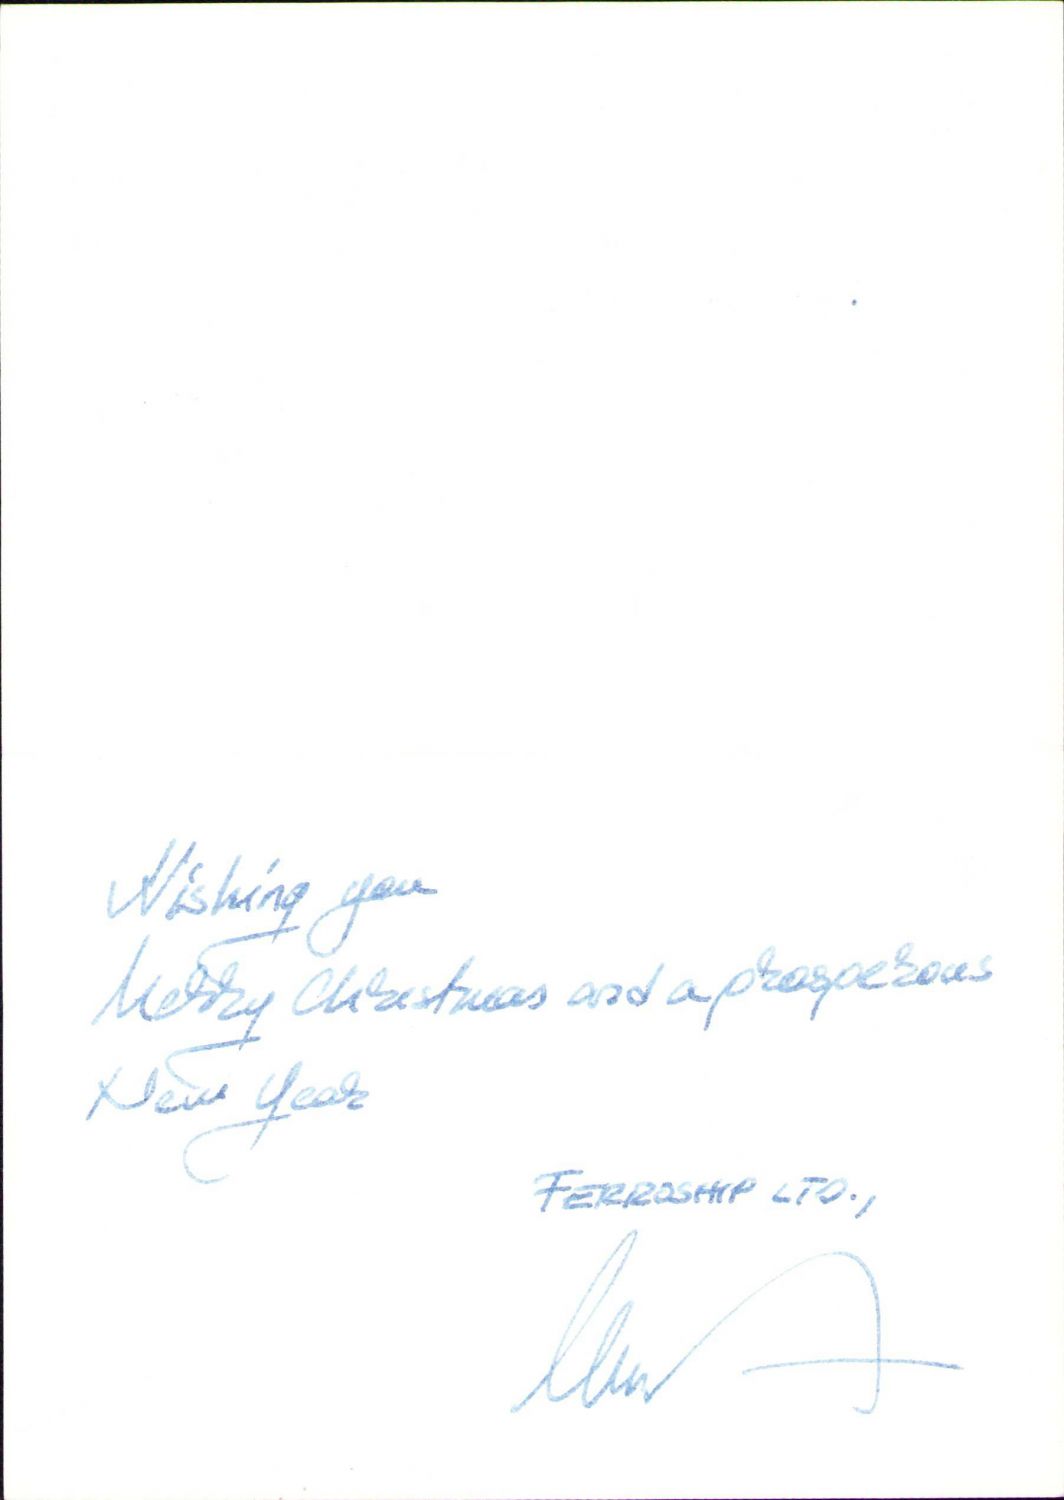 Wishing you
Merry Christmas and a prosperous
New Year
FERROSHIP LTD.,